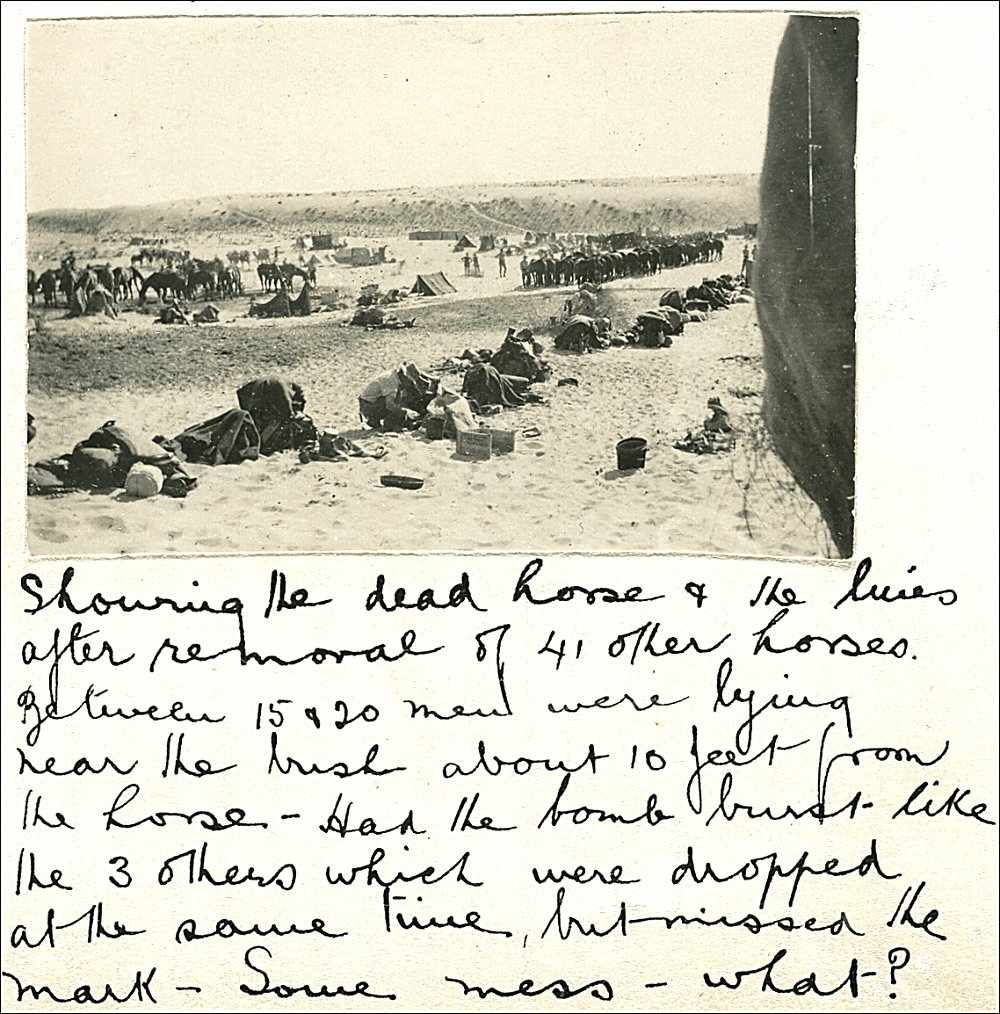 Showing the dead horse & the lines
after removal of 41 other horses.
Between 15 & 20 men were lying
near the bush about 10 feet from
the horse – Had the bomb burst like
the 3 others which were dropped
at the same time, but missed the
mark – Some mess – what?